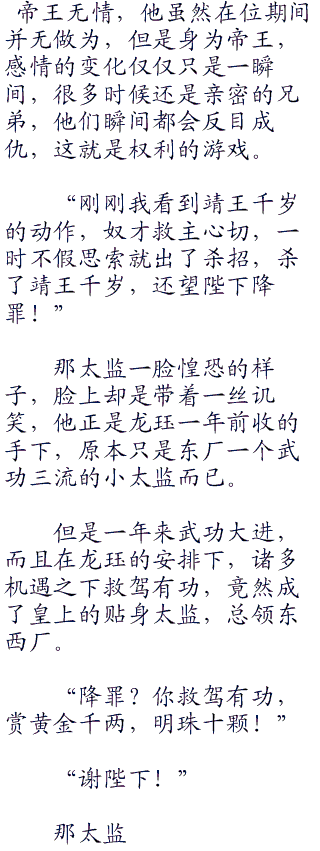 帝王无情，他虽然在位期间
并无做为，但是身为帝王，
感情的变化仅仅只是一瞬
间，很多时候还是亲密的兄
弟，他们瞬间都会反目成
仇，这就是权利的游戏。
“刚刚我看到靖王千岁
的动作，奴才救主心切，一
时不假思索就出了杀招，杀
了靖王千岁，还望陛下降
罪！”
那太监一脸惶恐的样
子，脸上却是带着一丝讥
笑，他正是龙珏一年前收的
手下，原本只是东厂一个武
功三流的小太监而已。
但是一年来武功大进，
而且在龙珏的安排下，诸多
机遇之下救驾有功，竟然成
了皇上的贴身太监，总领东
西厂。
“降罪？你救驾有功，
赏黄金千两，明珠十颗！”
“谢陛下！”
那太监